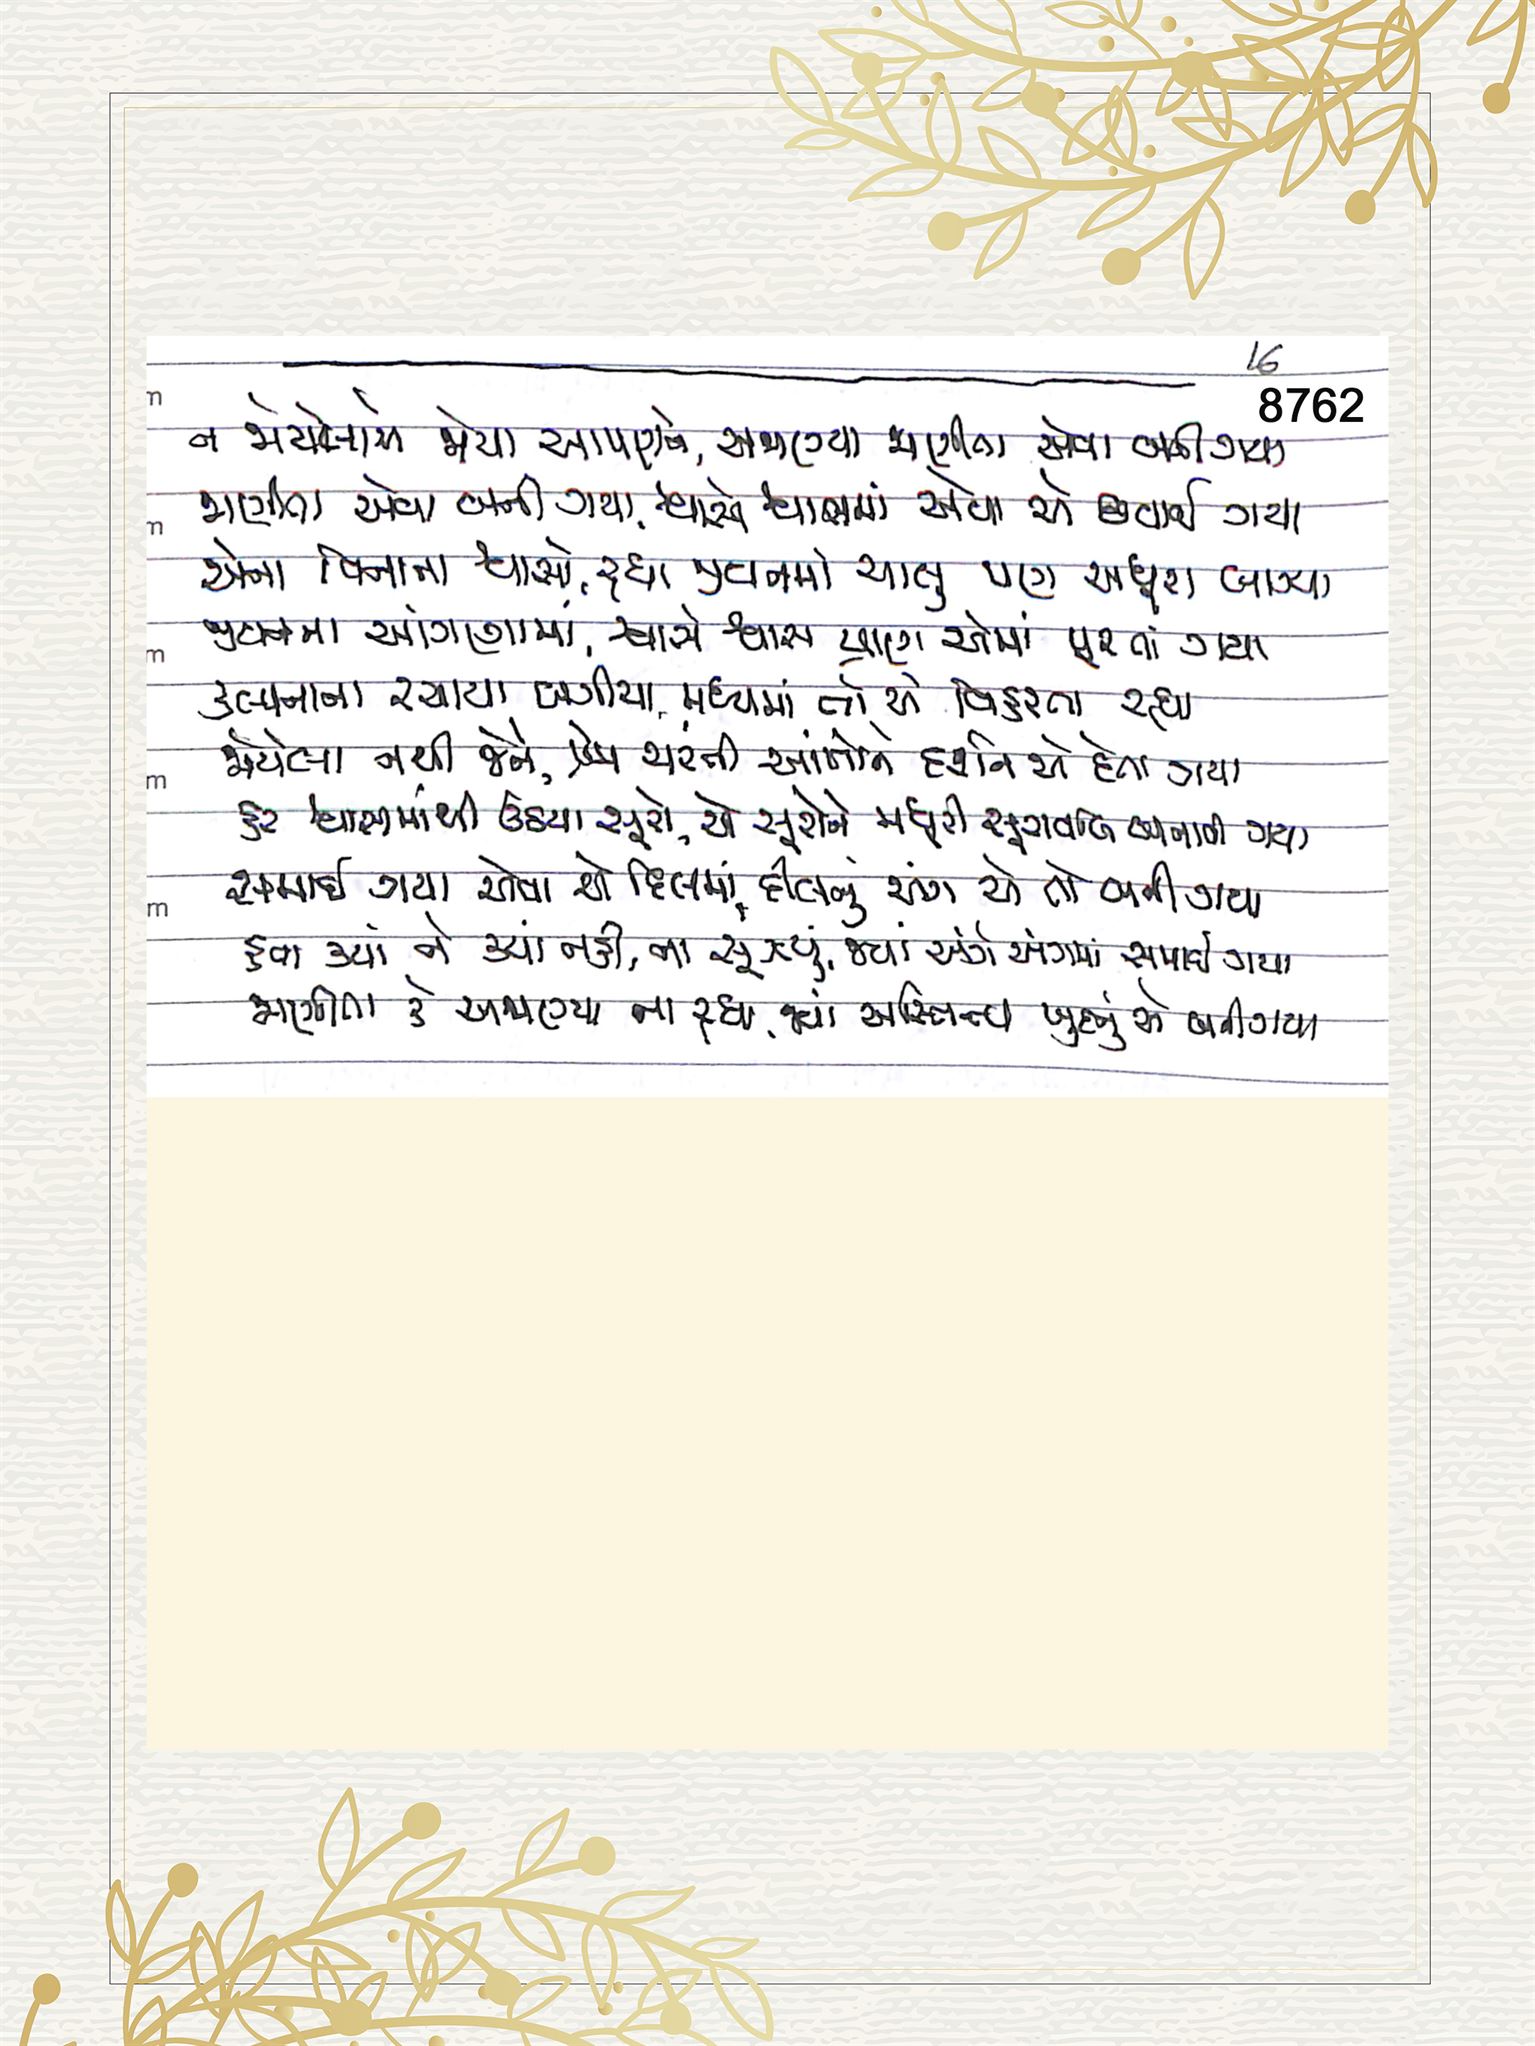 16
8762
ન જોયેલાએ જોયા આપણને, અજાણ્યા જાણીતા એવા બની ગયા
જાણીતા એવા બની ગયા, શ્વાસે શ્વાસમાં એવા એ છવાઈ ગયા
એના વિનાના શ્વાસો, રહ્યા જીવનમાં ચાલુ પણ અધૂરા લાગ્યા
જીવનના આંગણામાં, શ્વાસે શ્વાસ પ્રાણ એમાં પૂરતાં ગયા
કલ્પનાના રચાયા બગીચા, મધ્યમાં તો એ વિહરતા રહ્યા
જોયેલા નથી જેને, પ્રેમ ઝરતી આંખોને દર્શન એ દેતા ગયા
હર શ્વાસમાંથી ઉઠયા સૂરો, એ સૂરોને મધુરી સૂરાવલિ બનાવી ગયા
સમાઈ ગયા એવા એ દિલમાં, દીલનું અંગ એ તો બની ગયા
હવે ક્યાં ને ક્યાં નહી, ના સૂઝ્યું, જ્યાં અંગે અંગમાં સમાઈ ગયા
જાણીતા કે અજાણ્યા ના રહ્યા, જ્યાં અસ્તિત્વ ખુદનું એ બની ગયા